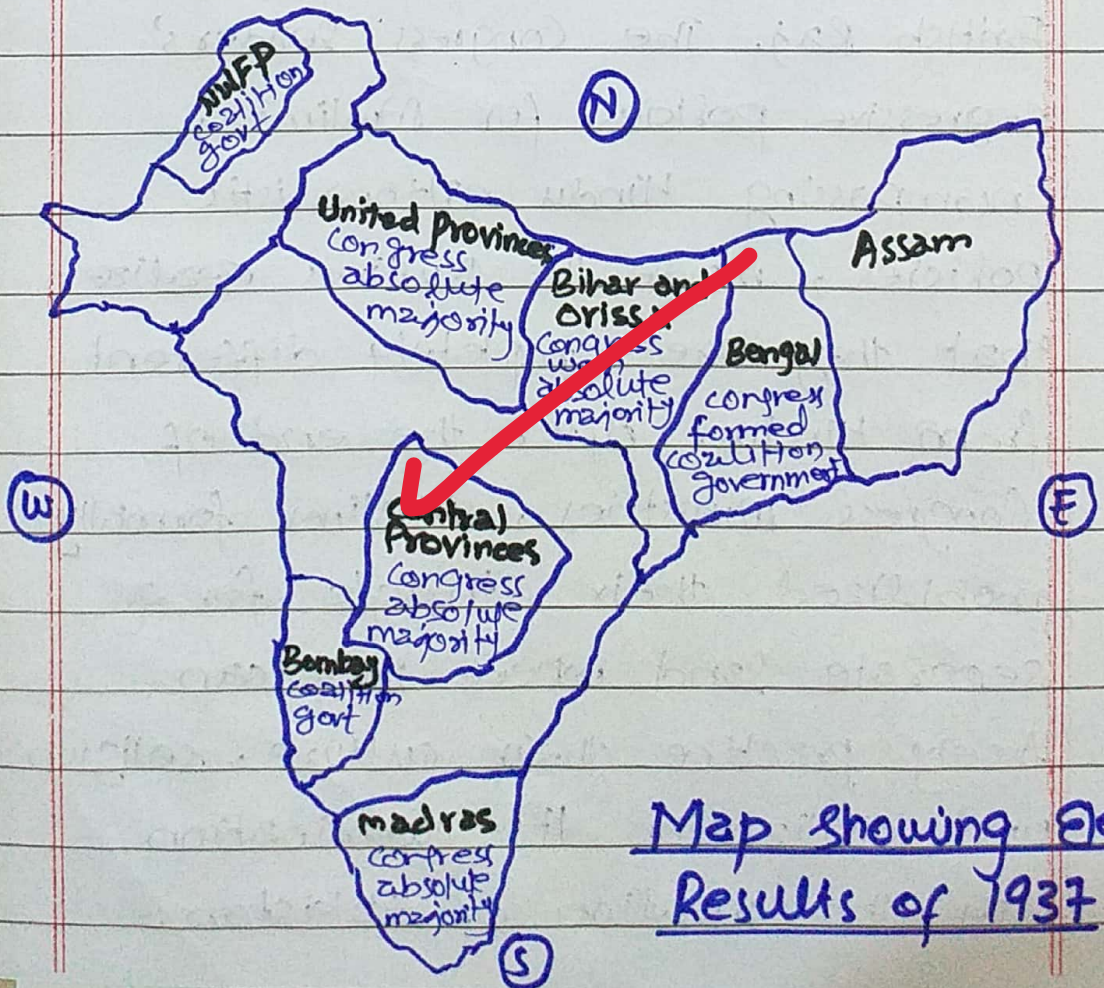 NWFP
coalition
govt
N
United Provinces
congress
absolute
majority
Bihar and
Orissa
congress
won
absolute
majority
Assam
Bengal
congress
formed
coalition
government
W
E
Central
Provinces
congress
absolute
majority
Bombay
coalition
govt
madras
congress
absolute
majority
S
Map showing
Results of 1937